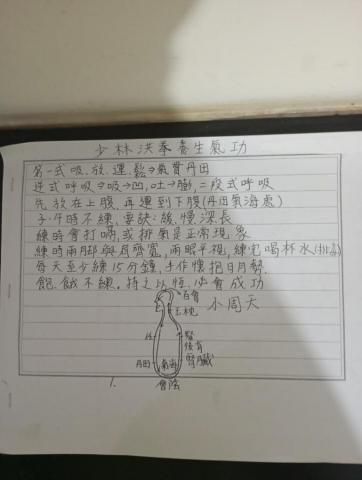 少林洪拳養生氣功
第一式吸、放、運、鬆→氣貫丹田
逆式呼吸→吸→凹,吐→膨,二段式呼吸
先放在上腹、再運到下腹(丹田氣海處)
子、午時不練、要訣:緩、慢、深、長
練時會打嗝,或排氣是正常現象
練時兩腳與肩齊寬,兩眼平視,練完喝杯水(排毒)
每天至少練15分鐘,手作懷抱日月勢.
飽.餓不練。持之以恆.必會成功
百會
玉枕
小周天
腎
後育
丹田 氣海 腎臟
會陰
1.